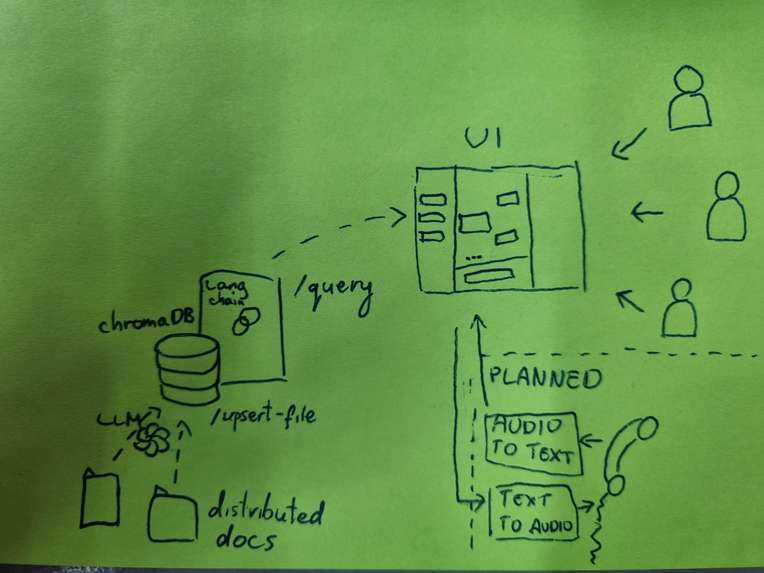 UI
Lang
chain
/query
chromaDB
LLM
/upsert-file
distributed
docs
PLANNED
AUDIO
TO TEXT
TEXT
TO AUDIO